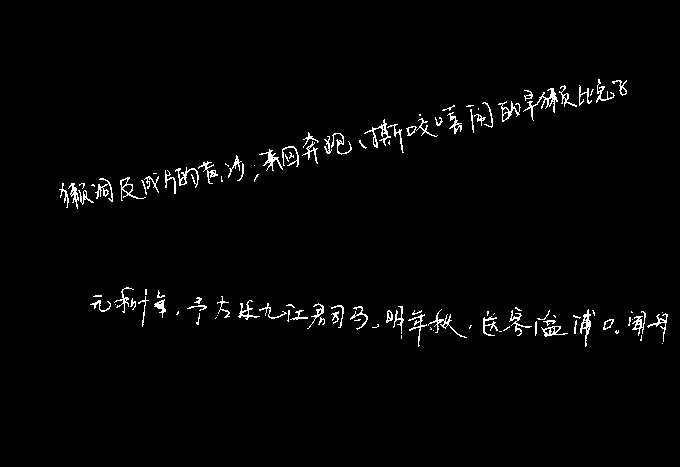 獭洞及成片的黄沙;来回奔跑、撕咬嘻闹的旱獭比
元和十年,予左迁九江君司马。明年秋,送客湓浦口。闻舟